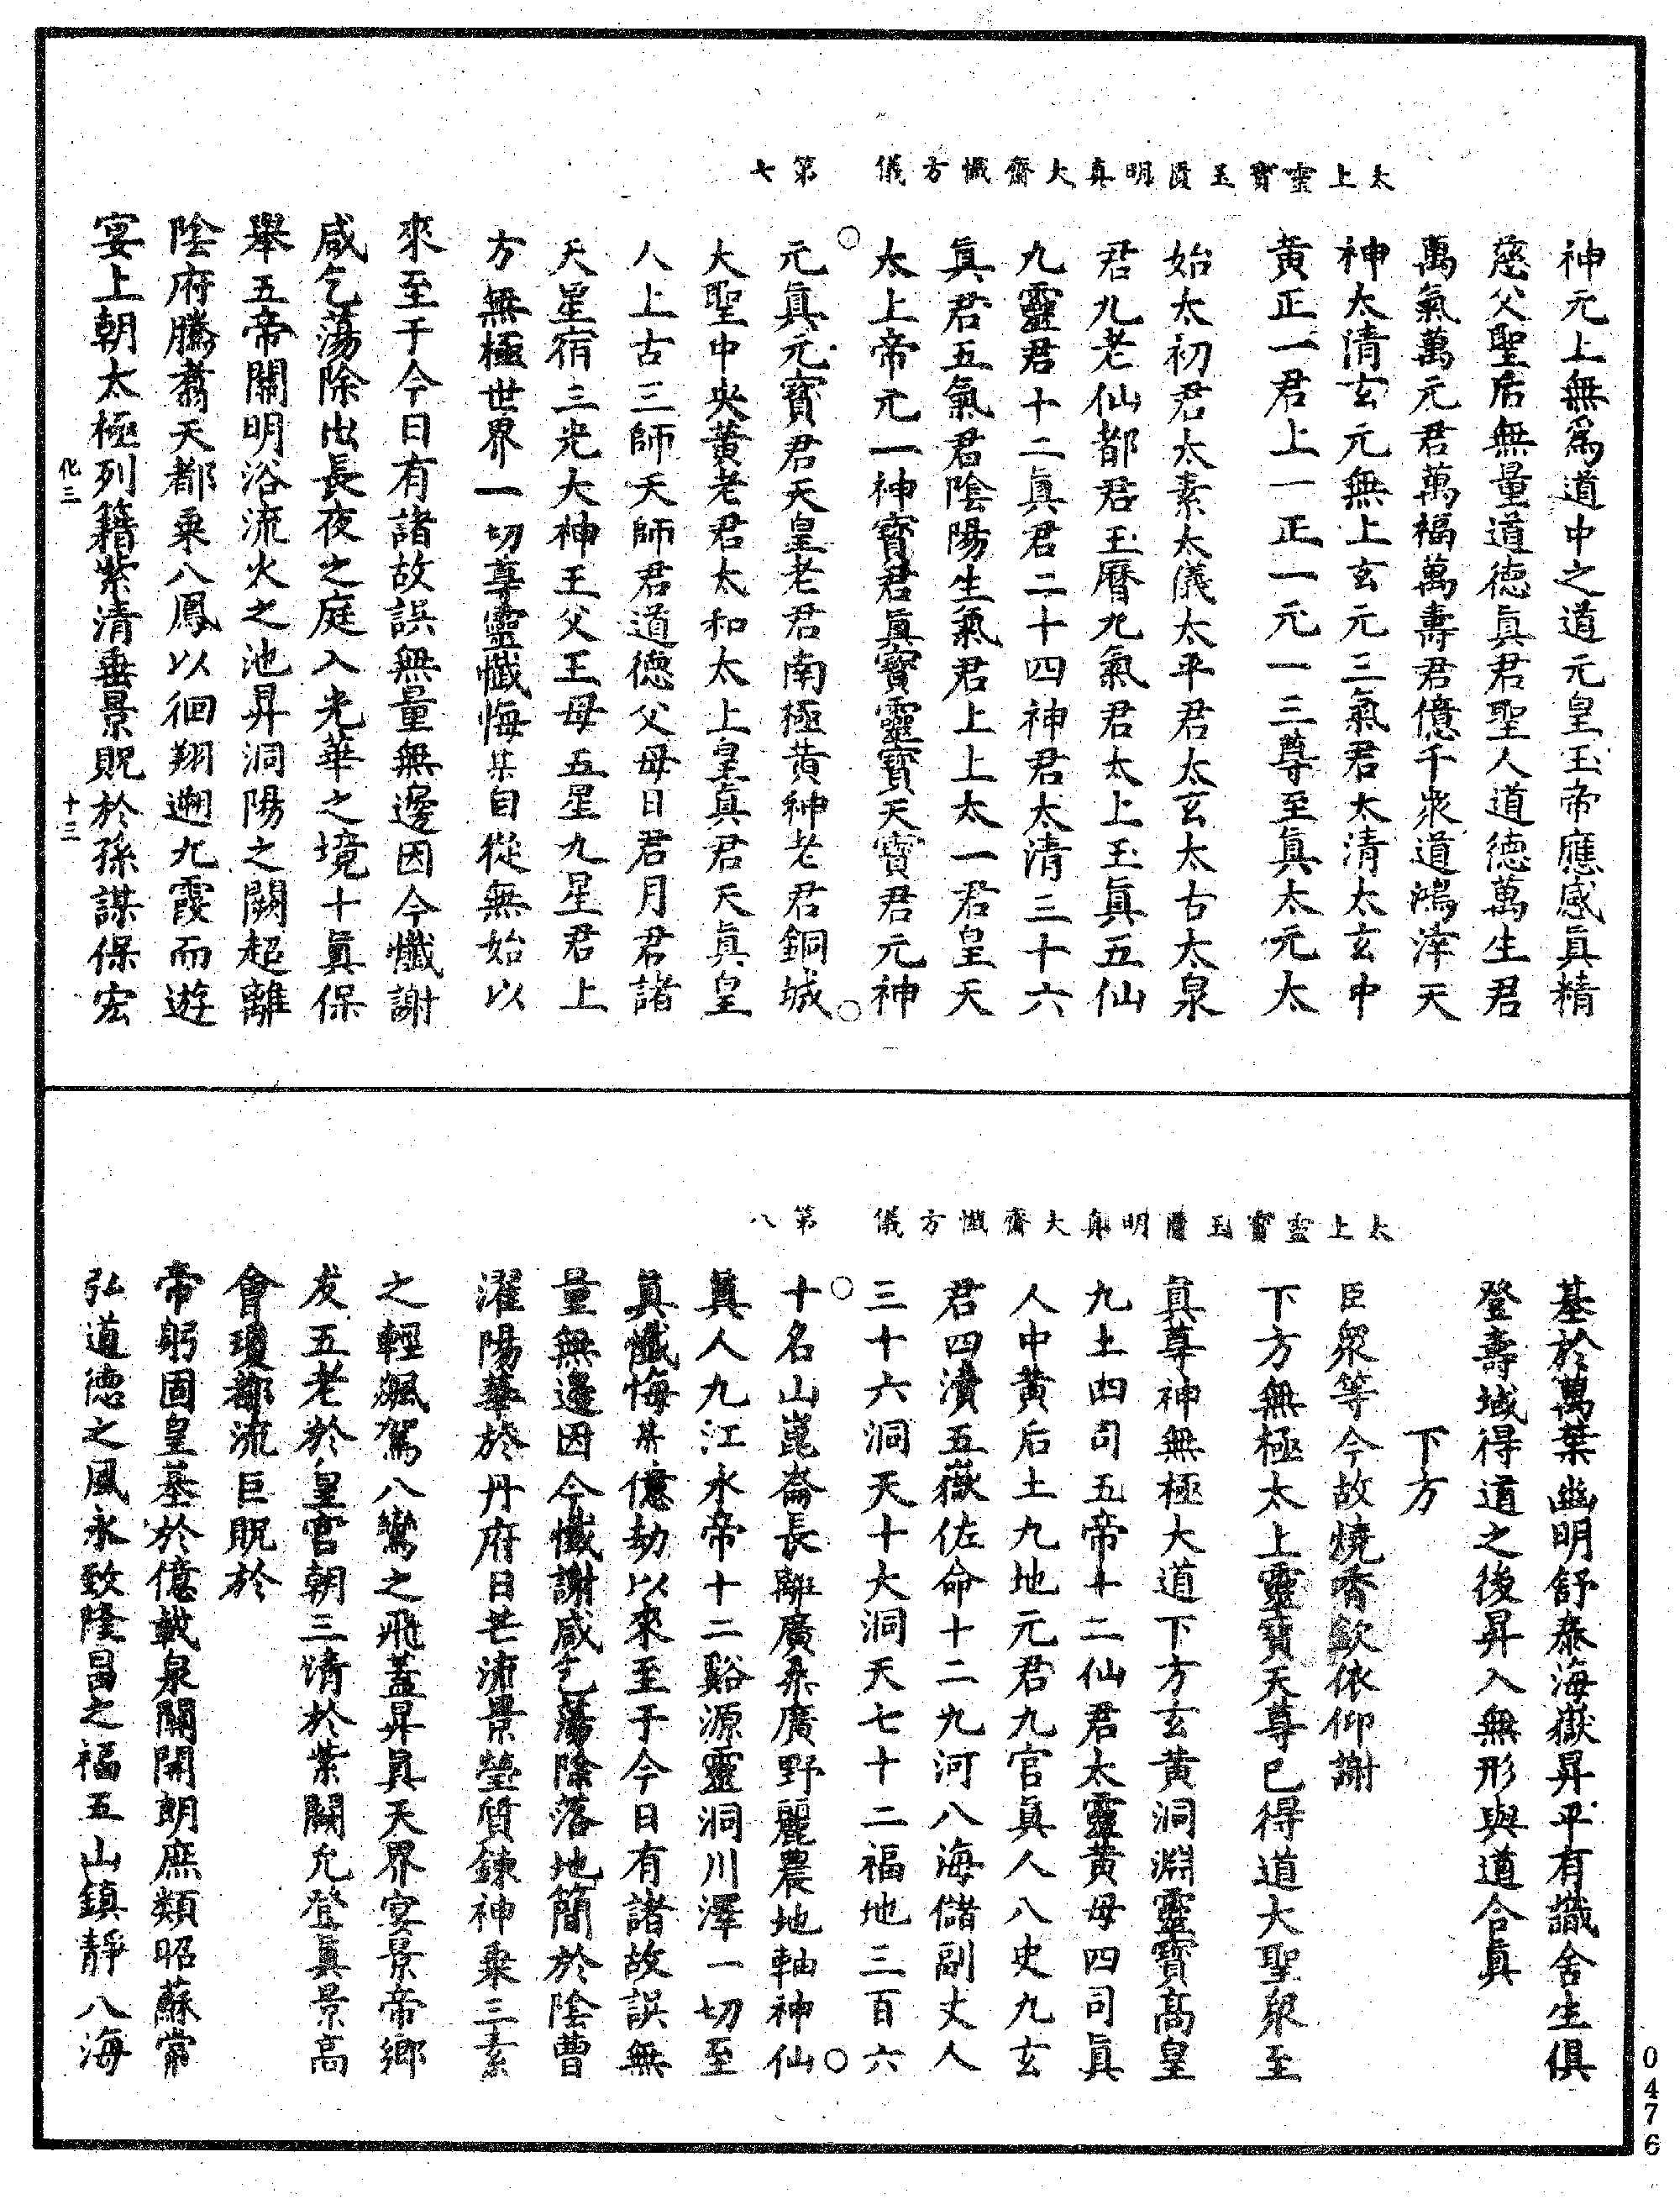 太上靈寶玉匱明真大齋懺方儀　第七
神元上無爲道中之道元皇玉帝應感眞精
慈父聖后無量道德眞君聖人道德萬生君
萬氣萬元君萬福萬壽君億千衆道鴻滓天
神太清玄元無上玄元三氣君太清太玄中
黃正一君上一正一元一三尊至眞太元太
始太初君太素太儀太平君太玄太古太泉
君九老仙都君玉曆九氣君太上玉眞五仙
九靈君十二眞君二十四神君太清三十六
眞君五氣君陰陽生氣君上上太一君皇天
太上帝元一神寶君眞寶靈寶天寶君元神
元眞元寶君天皇老君南極黃神老君銅城
大聖中央黃老君太和太上皇眞君天眞皇
人上古三師天師君道德父母日君月君諸
天星宿三光大神王父王母五星九星君上
方無極世界一切尊靈懺悔某自從無始以
來至于今日有諸故誤無量無邊因今懺謝
咸乞蕩除出長夜之庭入光華之境十眞保
舉五帝開明浴流火之池昇洞陽之闕超離
陰府騰翥天都乘八鳳以徊翔遡九霞而遊
宴上朝太極列籍紫清垂景貺於孫謀保宏
化三　十三
太上靈寶玉匱明真大齋懺方儀　第八
基於萬葉幽明舒泰海嶽昇平有識含生俱
登壽域得道之後昇入無形與道合眞
下方
臣衆等今故燒香歸依仰謝
下方無極太上靈寶天尊已得道大聖衆至
眞尊神無極大道下方玄黃洞淵靈寶高皇
九土四司五帝十二仙君太靈黃母四司眞
人中黃后土九地元君九官眞人八史九玄
君四瀆五嶽佐命十二九河八海儲副丈人
三十六洞天十大洞天七十二福地三百六
十名山崑崙長離廣桑廣野麗農地軸神仙
眞人九江水帝十二谿源靈洞川澤一切至
眞懺悔某億劫以來至于今日有諸故誤無
量無邊因今懺謝咸乞蕩除落地簡於陰曹
濯陽華於丹府日芒流景瑩質鍊神乘三素
之輕飈駕八鸞之飛蓋昇眞天界宴景帝鄉
友五老於皇宮朝三清於紫闕允登眞景高
會瓊都流巨貺於
帝躬固皇基於億載泉關開朗庶類昭蘇常
弘道德之風永致隆昌之福五山鎮靜八海
0476